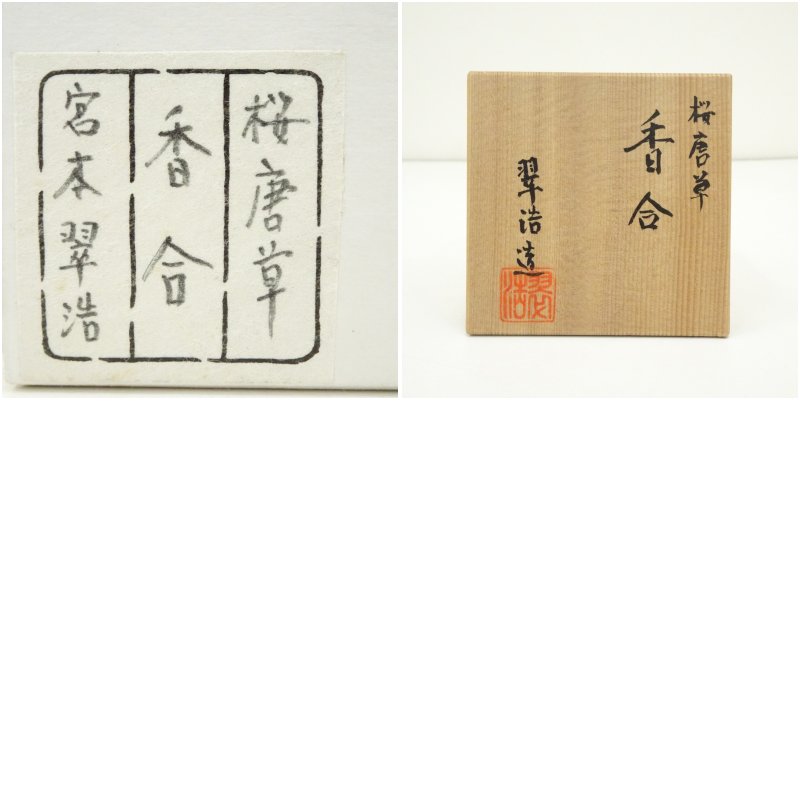 桜唐草
香合
宮本翠浩
桜唐草
香合
翠浩造
翠浩